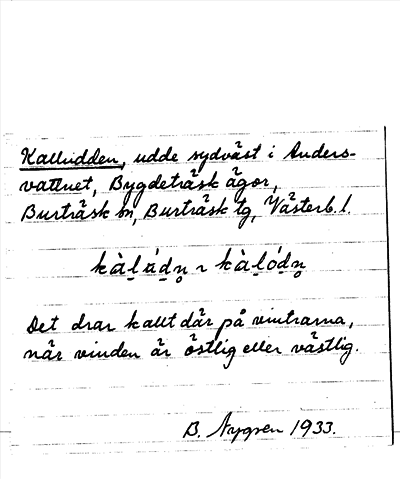 Kalludden, udde sydväst i Anders-
vattnet, Bygdeträsk ägor,
Burträsk sn, Burträsk tg, Västerb. l.
kàḷáḍn̥ ~ kàḷóḍn̥
Det drar kallt där på vintrarna,
när vinden är östlig eller västlig.
B. Nygren 1933.